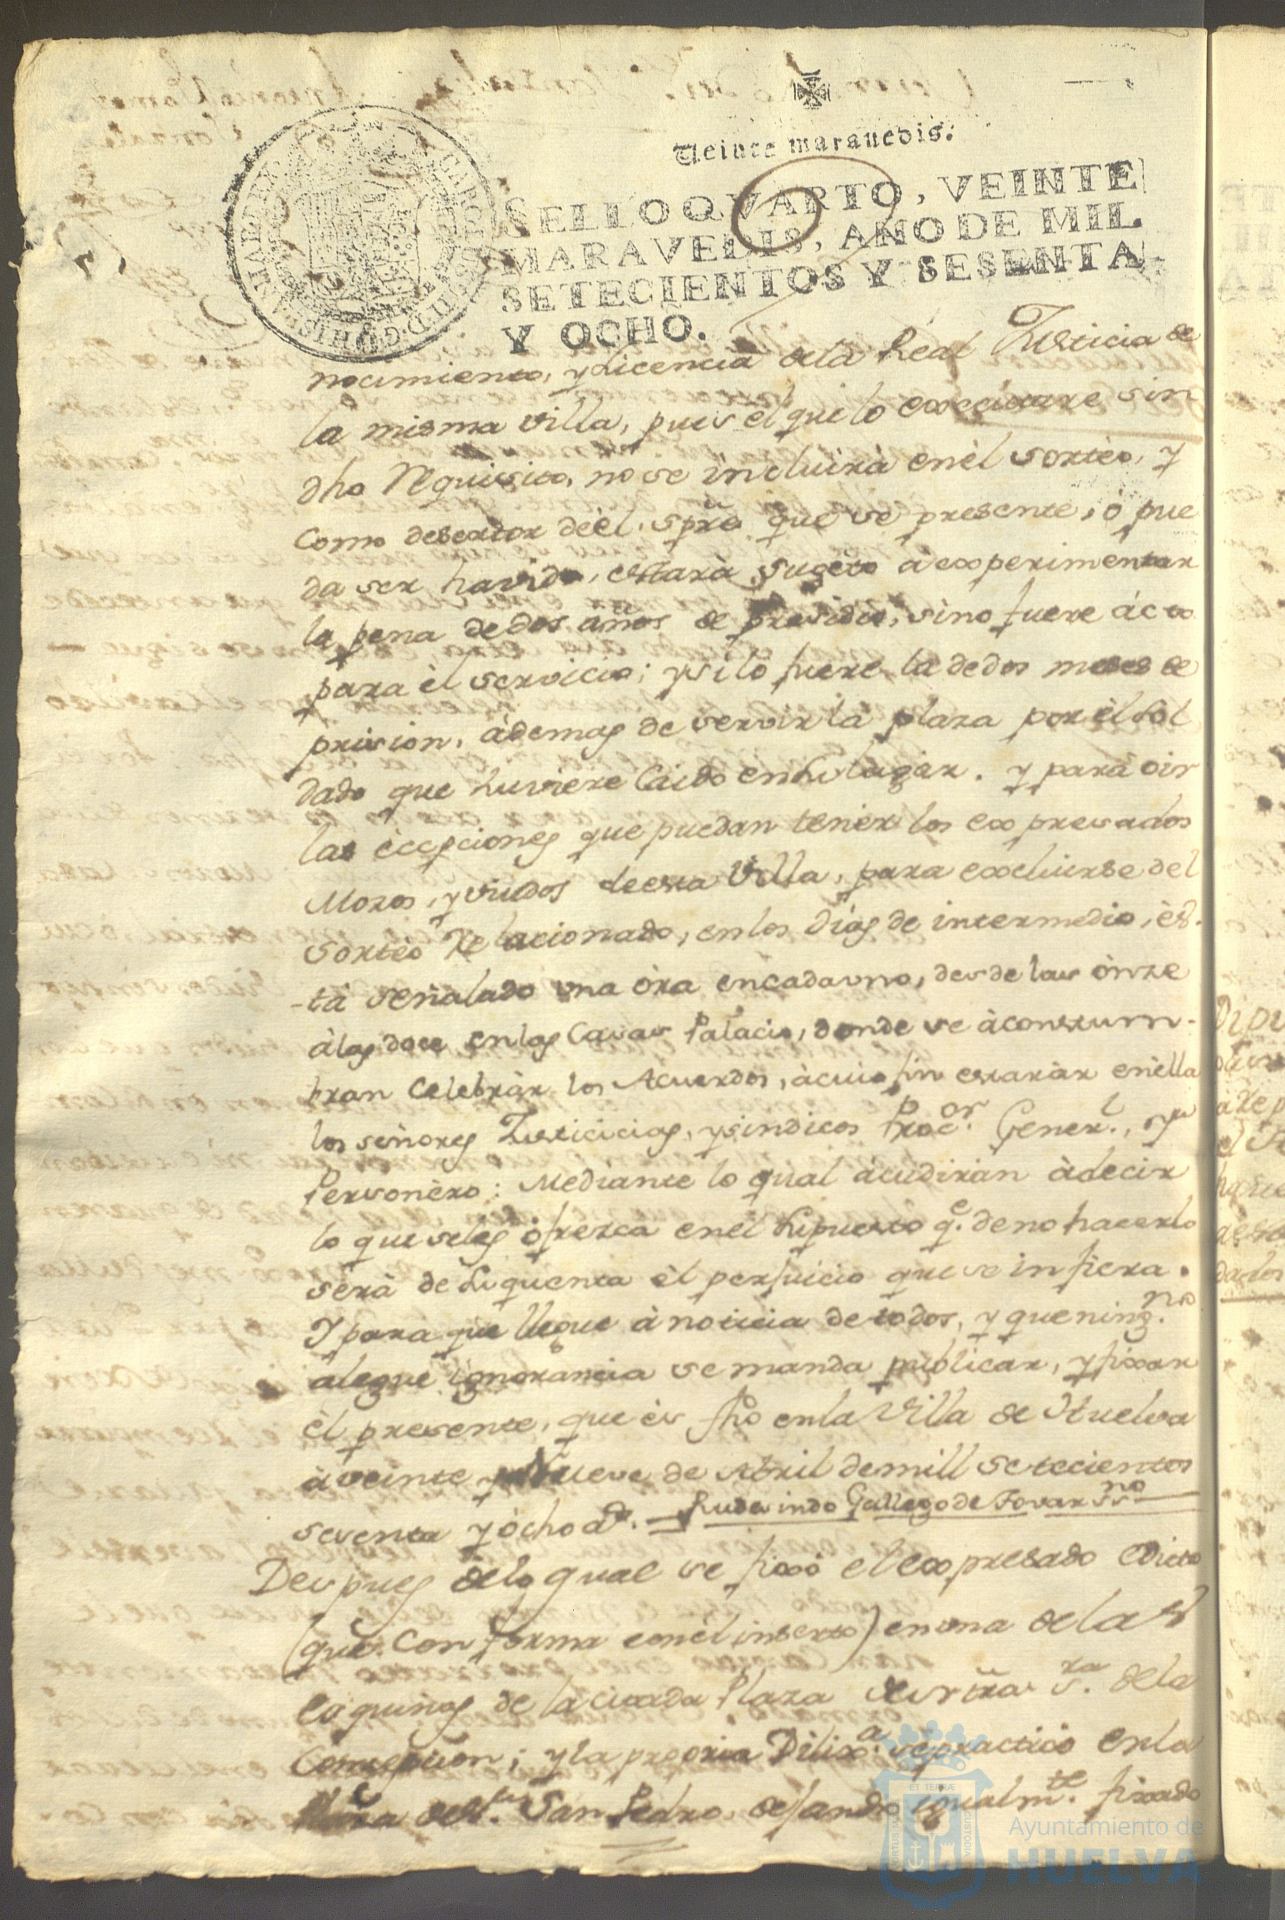 Veinte maravedis.
SELLO QVARTO, VEINTE
MARAVEDIS, AÑO DE MIL
SETECIENTOS Y SESENTA
Y OCHO.
nocimiento, y Licencia dela Real Justicia de
la misma villa, pues el que lo execùtare sin
dho Requisito, no se incluirà enèl sortèo, y
como desertor deèl, spre. que se presente, ò pue
da ser havido, estarà sugeto à experimentar
la pena de dos años de presidio, sino fuere àcto
para èl servicio; y si lo fuere la de dos meses de
prision, àdemas de servir la plaza por èl sol
dado que huviere Caido en su lugar. y para oir
las èccepciones que puedan tenèr los expresados
Mozos, y viudos de esta Villa, para excluirse del
Sortèo Relacionado, en los dias de intermedio, ès-
-tà señalado una òra en cada uno, desde las ònze
à las doce en las Casas Palacio, donde se àcostum-
bran Celebràr los Acuerdos, àcuio fin estaràn enèlla
los señores Justicicias, y sindicos Procor. Generl., y
Personèro: Mediante lo qual àcudiràn àdecir
lo que seles òfrezca enèl supuesto qe. de no hacerlo
serà de su quenta èl perjuicio que se infiera.
Y para que llegue à noticia de todos, y que ningno.
alegue ignorancia se manda publicar, y fixar
èl presente, que ès fho en la Villa de Huelva
à veinte y Nueve de Abril de mill setecientos
sesenta y òcho as. = Rudesindo Gallego de Tovar ssno
Despues delo qual se fixò el expresado Edicto
(que Conforma con èl inserto) en una de las
esquinas de la citada Plaza de ntra sra. dela
Concepcion; y la propria Dilixa. se practicò en la
Plaza de Sr. San Pedro, dejando igualmte. fixado
Ayuntamiento de
HUELVA